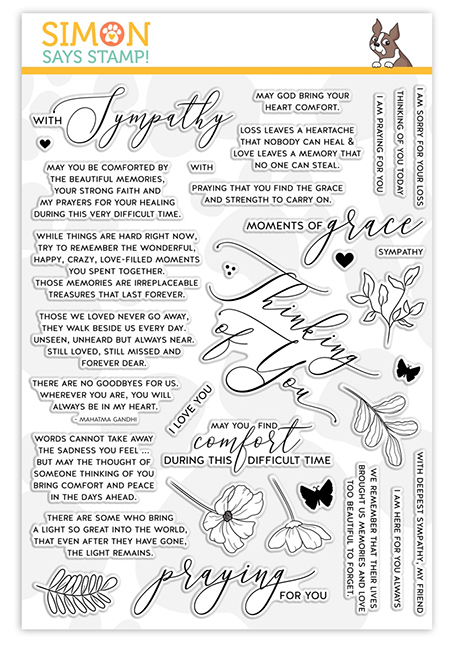 SIMON
SAYS STAMP!
WITH Sympathy
MAY GOD BRING YOUR
HEART COMFORT.
LOSS LEAVES A HEARTACHE
THAT NOBODY CAN HEAL &
LOVE LEAVES A MEMORY THAT
NO ONE CAN STEAL.
I AM PRAYING FOR YOU
THINKING OF YOU TODAY
I AM SORRY FOR YOUR LOSS
MAY YOU BE COMFORTED BY
THE BEAUTIFUL MEMORIES,
YOUR STRONG FAITH AND
MY PRAYERS FOR YOUR HEALING
DURING THIS VERY DIFFICULT TIME.
WITH
PRAYING THAT YOU FIND THE GRACE
AND STRENGTH TO CARRY ON.
MOMENTS OF grace
SYMPATHY
WHILE THINGS ARE HARD RIGHT NOW,
TRY TO REMEMBER THE WONDERFUL,
HAPPY, CRAZY, LOVE-FILLED MOMENTS
YOU SPENT TOGETHER.
THOSE MEMORIES ARE IRREPLACEABLE
TREASURES THAT LAST FOREVER.
Thinking
of You
THOSE WE LOVED NEVER GO AWAY,
THEY WALK BESIDE US EVERY DAY.
UNSEEN, UNHEARD BUT ALWAYS NEAR.
STILL LOVED, STILL MISSED AND
FOREVER DEAR.
THERE ARE NO GOODBYES FOR US.
WHEREVER YOU ARE, YOU WILL
ALWAYS BE IN MY HEART.
- MAHATMA GANDHI
I LOVE YOU
MAY YOU FIND
comfort
DURING THIS DIFFICULT TIME
WORDS CANNOT TAKE AWAY
THE SADNESS YOU FEEL ...
BUT MAY THE THOUGHT OF
SOMEONE THINKING OF YOU
BRING COMFORT AND PEACE
IN THE DAYS AHEAD.
THERE ARE SOME WHO BRING
A LIGHT SO GREAT INTO THE WORLD,
THAT EVEN AFTER THEY HAVE GONE,
THE LIGHT REMAINS.
WE REMEMBER THAT THEIR LIVES
BROUGHT US MEMORIES AND LOVE
TOO BEAUTIFUL TO FORGET.
I AM HERE FOR YOU ALWAYS
WITH DEEPEST SYMPATHY, MY FRIEND
praying
FOR YOU